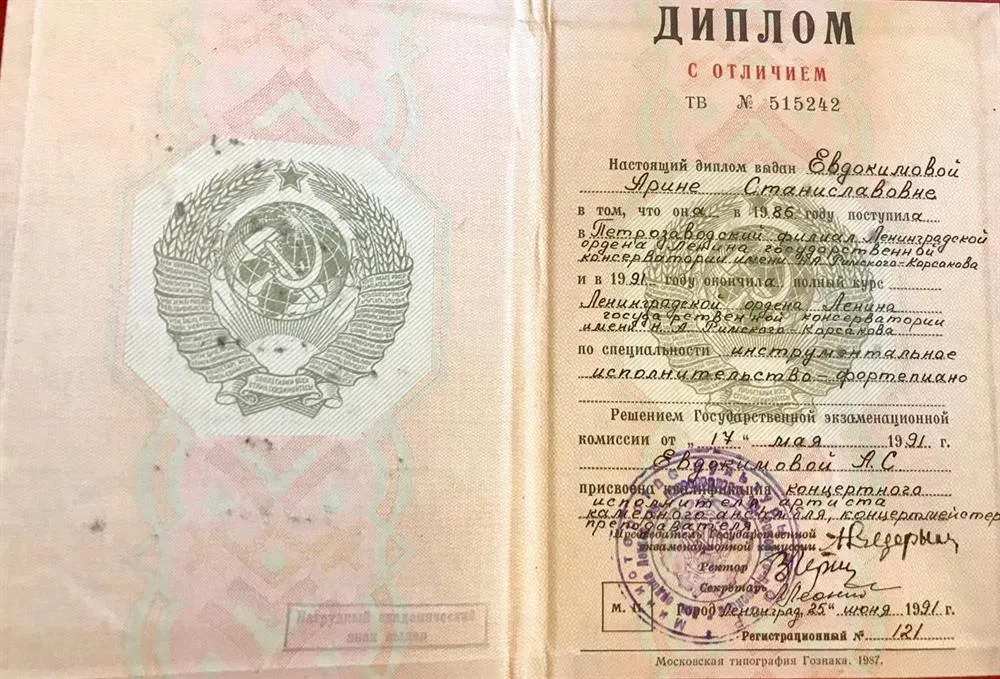 Нагрудный академический
знак выдан
ДИПЛОМ
С ОТЛИЧИЕМ
ТВ № 515242
Настоящий диплом выдан Евдокимовой
Арине Станиславовне
в том, что она в 1986 году поступила
в Петрозаводский филиал Ленинградской
ордена Ленина государственной
консерватории имени Н.А. Римского-Корсакова
и в 1991 году окончила полный курс
Ленинградской ордена Ленина
государственной консерватории
имени Н. А. Римского-Корсакова
по специальности инструментальное
исполнительство фортепиано
Решением Государственной экзаменационной
комиссии от „17“ мая 1991 г.
Евдокимовой А.С
присвоена квалификация концертного
исполнителя, артиста
камерного ансамбля, концертмейстера
преподавателя
Председатель Государственной
экзаменационной комиссии
Ректор
Секретарь
М. П. Город Ленинград, 25“ июня 1991 г.
Регистрационный № 121
Московская типография Гознака. 1987.